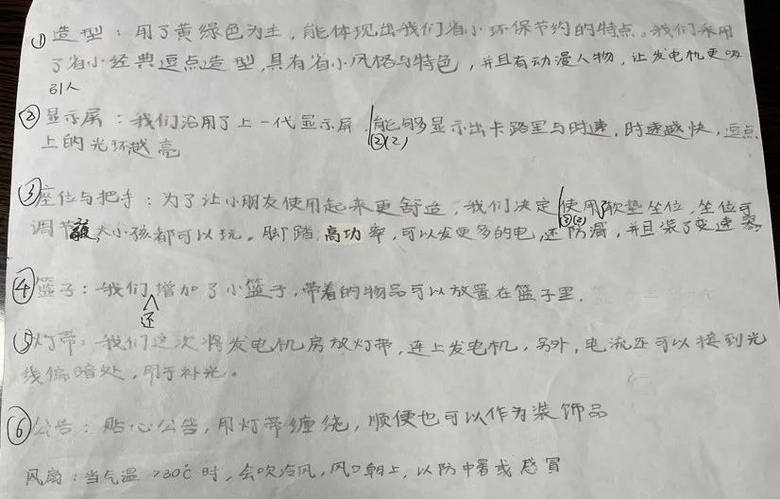 ①造型：用了黄绿色为主，能体现出我们省小环保节约的特点。我们采用
了省小经典逗点造型，具有省小风格与特色，并且有动漫人物，让发电机更吸
引人
②显示屏：我们沿用了上一代显示屏，能够显示出卡路里与时速，时速越快，逗点
②(2)
上的光环越亮
③座位与把手：为了让小朋友使用起来更舒适，我们决定使用软垫坐位，坐位可
调节，大小孩都可以玩。脚踏：高功率，可以发更多的电，还防滑，并且装了变速器
④篮子：我们增加了小篮子，带着的物品可以放置在篮子里，
还
⑤灯带：我们这次将发电机房放灯带，连上发电机，另外，电流还可以接到光
线偏暗处，用于补光。
⑥公告：贴心公告，用灯带缠绕，顺便也可以作为装饰品
风扇：当气温>30℃时，会吹冷风，风口朝上，以防中暑或感冒